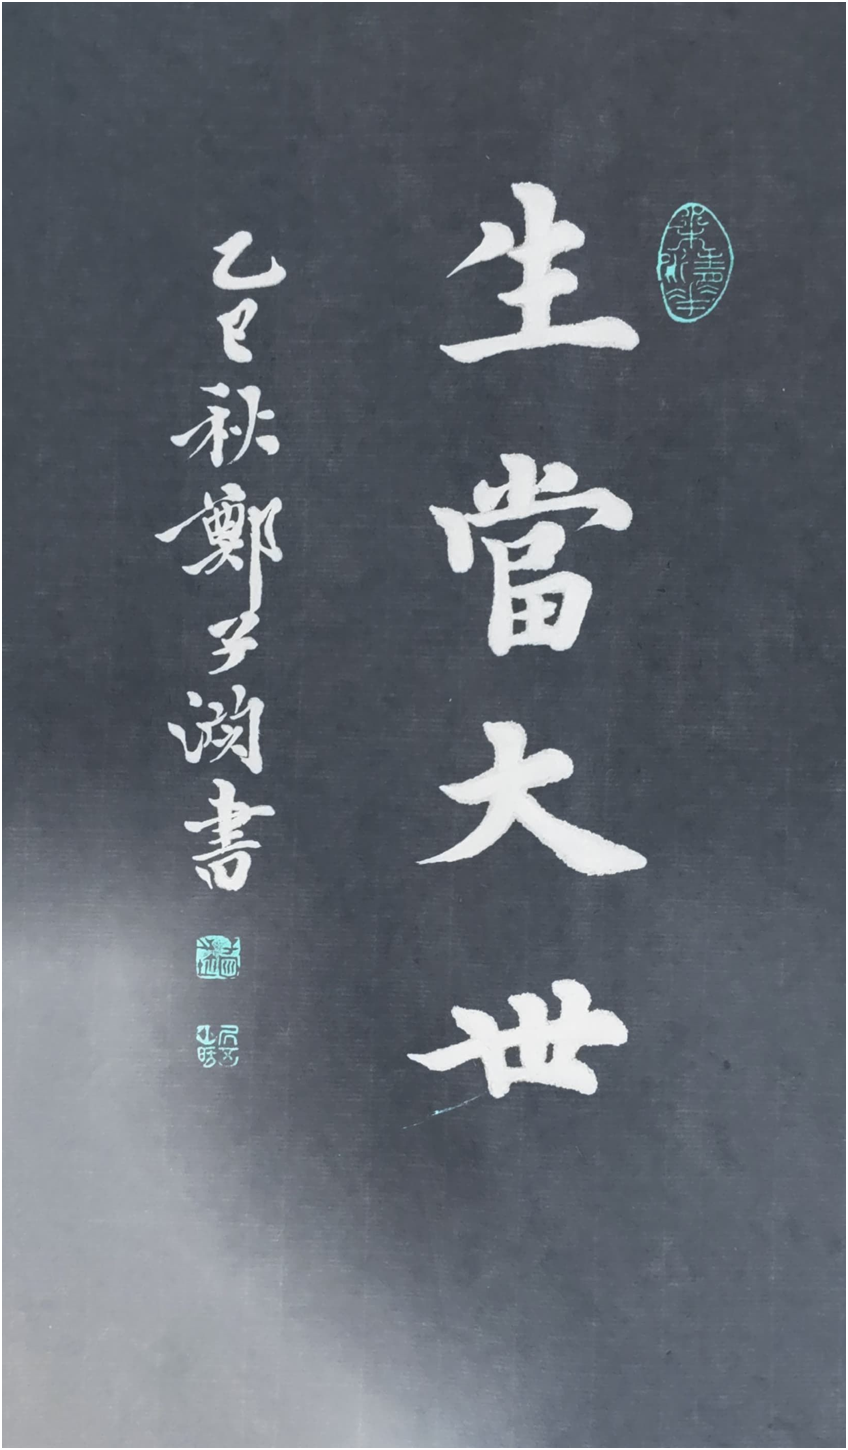 生當大世
乙巳秋鄭子渊書